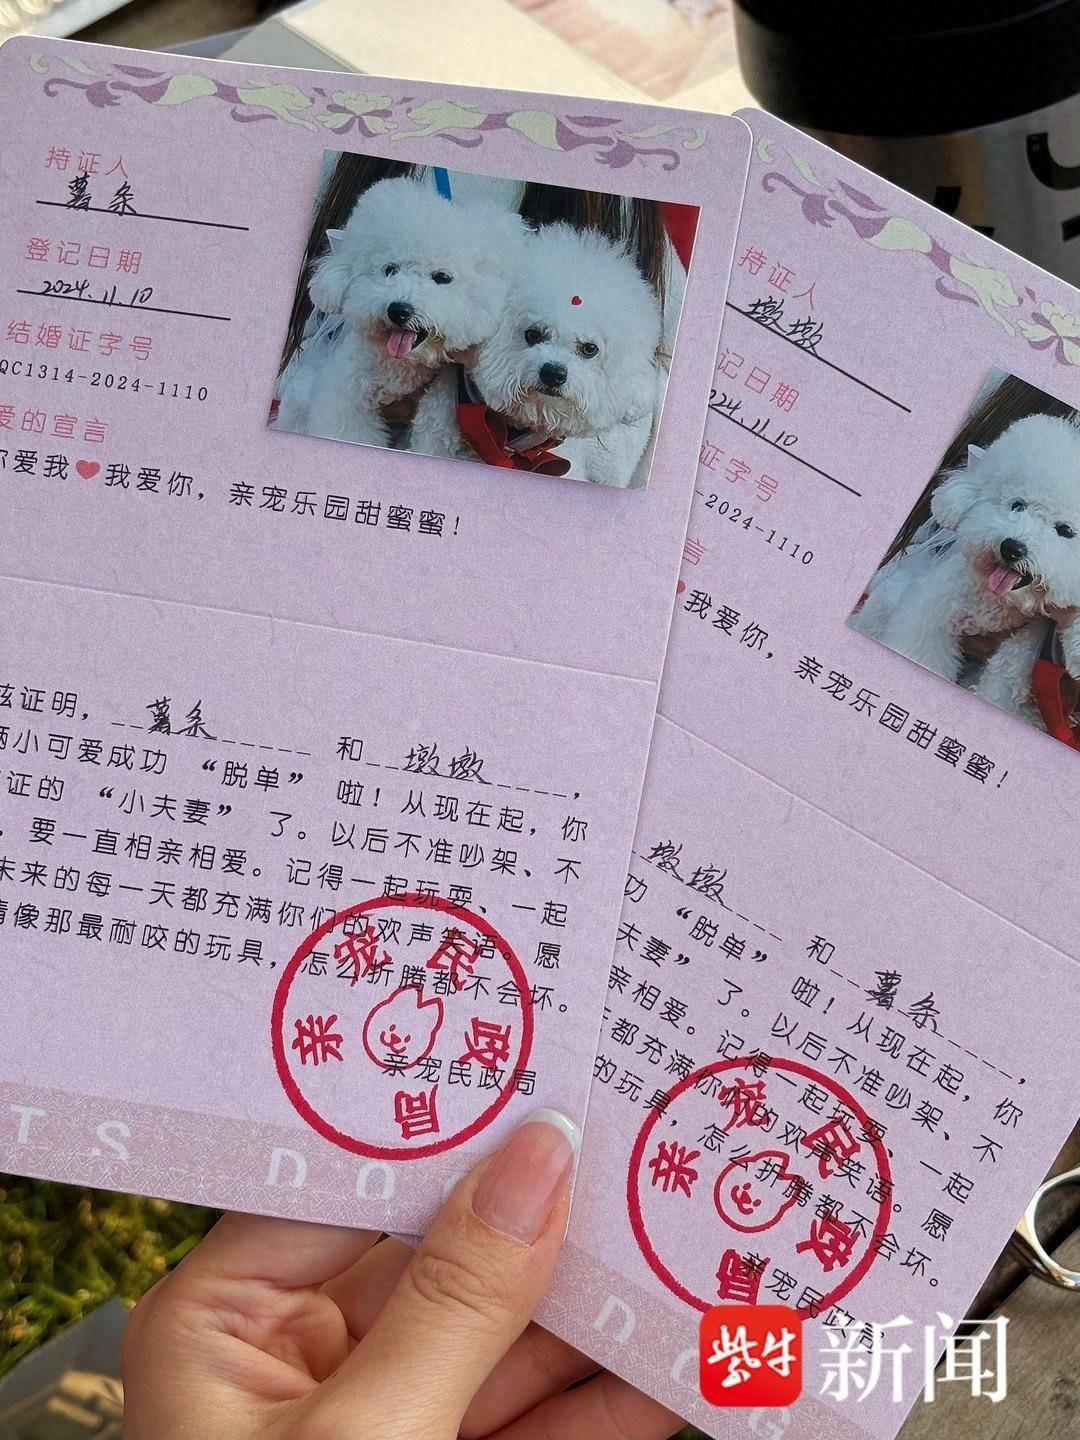 持证人
薯条
登记日期
2024.11.10
结婚证字号
QC1314-2024-1110
爱的宣言
你爱我❤我爱你，亲宠乐园甜蜜蜜！
兹证明，薯条 和 墩墩，
俩小可爱成功“脱单”啦！从现在起，你
证的“小夫妻”了。以后不准吵架、不
，要一直相亲相爱。记得一起玩耍、一起
未来的每一天都充满你们的欢声笑语。愿
情像那最耐咬的玩具，怎么折腾都不会坏。
亲宠民政局
亲宠民政局
TS DO
持证人
墩墩
记日期
2024.11.10
证字号
-2024-1110
言
❤我爱你，亲宠乐园甜蜜蜜！
墩墩 和 薯条，
功“脱单”啦！从现在起，你
夫妻”了。以后不准吵架、不
亲相爱。记得一起玩耍、一起
天都充满你们的欢声笑语。愿
的玩具，怎么折腾都不会坏。
亲宠民政局
亲宠民政局
D G
紫牛新闻